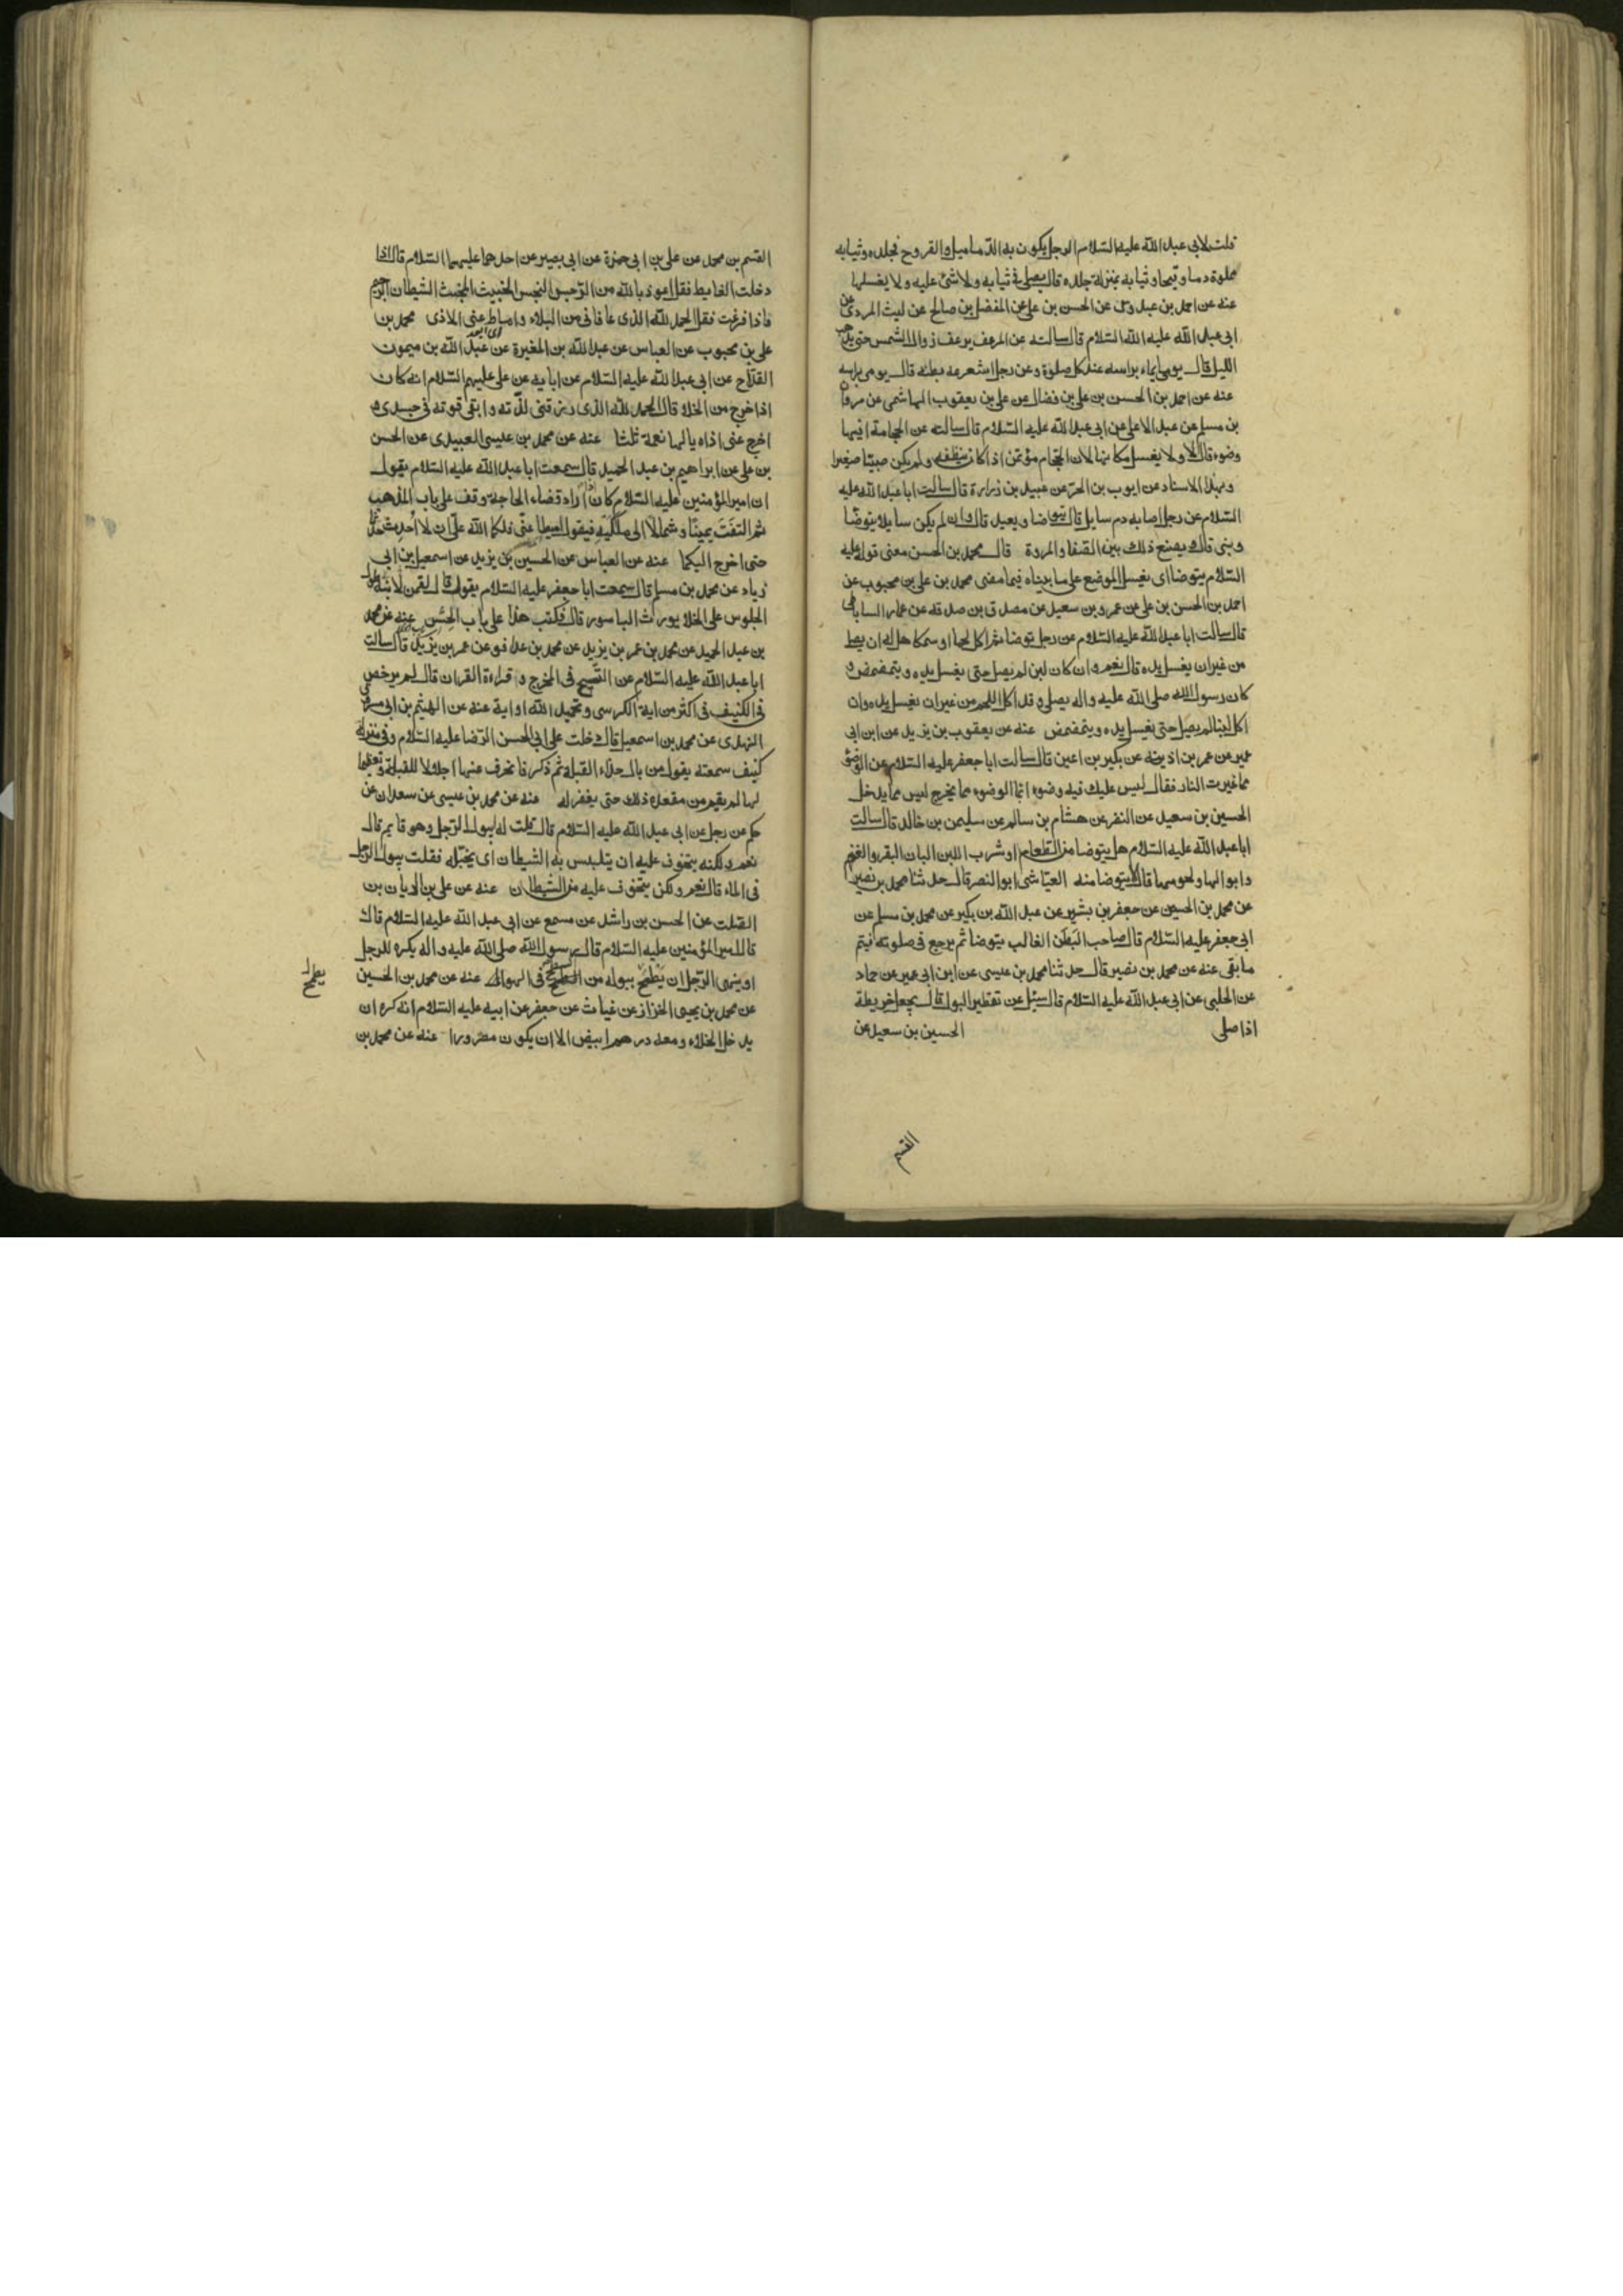 قلت لابي عبد الله عليه السّلام الرجل يكون به الدّماميل والقروح فجلده وثيابه
مملوة دما وقيحا وثيابه بمنزلة جلده قال يصلى في ثيابه ولا شئ عليه ولا يغسلها
عنه عن احمد بن عبدوس عن الحسن بن على عن المفضل بن صالح عن ليث المرادى عن
ابى عبد الله عليه السّلام قال سالته عن المرعف يرعف زوال الشمس حتى يذهب
الليل قال يومى ايماء براسه عند كل صلوة وعن رجل استفرغه بطنه قال يومى براسه
عنه عن احمد بن الحسن بن على بن فضال عن على بن يعقوب الهاشمى عن مروان
بن مسلم عن عبد الاعلى عن ابى عبد الله عليه السّلام قال سالته عن الحجامة افيها
وضوء قال لا ولا يغسل مكانها لان الحجام مؤتمن اذا كان ينظفه ولم يكن صبيّا صغيرا
وبهذا الاسناد عن ايوب بن الحرّ عن عبيد بن زرارة قال سالت ابا عبد الله عليه
السّلام عن رجل اصابه دم سايل قال يتوضا ويعيد قال وان لم يكن سايلا يتوضّا
وبنى قال ويصنع ذلك بين الصّفا والمروة قال محمد بن الحسن معنى قوله عليه
السّلام يتوضا اى يغسل الموضع على ما بيناه فيما مضى محمد بن على بن محبوب عن
احمد بن الحسن بن على عن عمرو بن سعيد عن مصدق بن صدقه عن عمار الساباطى
قال سالت ابا عبد الله عليه السّلام عن رجل توضا ثم اكل لحما او سمكا هل له ان يصلى
من غير ان يغسل يده قال نعم وان كان لبن لم يصل حتى يغسل يده ويتمضمض و
كان رسول الله صلى الله عليه واله يصلى وقد اكل اللحم من غير ان يغسل يده وان
اكل لبنا لم يصل حتى يغسل يده ويتمضمض عنه عن يعقوب بن يزيد عن ابن ابى
عمير عن عمر بن اذينه عن بكير بن اعين قال سالت ابا جعفر عليه السّلام عن الوضؤ
مما غيرت النار فقال ليس عليك فيه وضوء انما الوضوء مما يخرج ليس مما يدخل
الحسين بن سعيد عن النضر عن هشام بن سالم عن سليمن بن خالد قال سالت
ابا عبد الله عليه السّلام هل يتوضا من الطعام او شرب اللبن البان البقر والغنم
وابوالها ولحومها قال لا يتوضا منه العيّاشى ابو النصر قال حدثنا محمد بن نصير
عن محمد بن الحسين عن جعفر بن بشير عن عبد الله بن بكير عن محمد بن مسلم عن
ابى جعفر عليه السّلام قال صاحب البَطَن الغالب يتوضا ثم يرجع فى صلوته فيتم
ما بقى عنه عن محمد بن نصير قال حدثنا محمد بن عيسى عن ابن ابى عمير عن حماد
عن الحلبى عن ابى عبد الله عليه السّلام قال سئل عن تقطير البول قال يجعل خريطة
اذا صلى الحسين بن سعيد عن
القسم
القسم بن محمد عن على بن ابى حمزة عن ابى بصير عن احدهما عليهما السّلام قال اذا
دخلت الغايط فقل اعوذ بالله من الرّجس النجس الخبيث المخبث الشيطان الرّجيم
فاذا فرغت فقل الحمد لله الذى عافانى من البلاء واماط عنى الاذى محمد بن
على بن محبوب عن العباس عن عبد الله بن المغيرة عن عبد الله بن ميمون
القدّاح عن ابى عبد الله عليه السّلام عن ابايه عن على عليهم السّلام انه كان
اذا خرج من الخلا قال الحمد لله الذى رزقنى لذّته وابقى قوته فى جسدى و
اخرج عنى اذاه يالها نعمة ثلثا عنه عن محمد بن عيسى العبيدى عن الحسن
بن على عن ابراهيم بن عبد الحميد قال سمعت ابا عبد الله عليه السّلام يقول
ان امير المؤمنين عليه السّلام كان اذا اراد قضاء الحاجة وقف على باب المذهب
ثم التفَتَ يمينًا وشمالًا الى ملكَيْهِ فيقول اميطا عنّى فلكما الله علىّ ان لا اُحدِث حَدثا
حتى اخرج اليكما عنه عن العباس عن الحسين بن يزيد عن اسمعيل بن ابى
زياد عن محمد بن مسلم قال سمعت ابا جعفر عليه السّلام يقول قال لقمن لابنه طول
الجلوس على الخلا يورث الباسور قال فكتب هذا على باب الحشّ عنه عن محمد
بن عبد الحميد عن محمد بن عمر بن يزيد عن محمد بن عذافر عن عمر بن يزيد قال سالت
ابا عبد الله عليه السّلام عن التسبيح فى المخرج وقراءة القران قال لم يرخص
فى الكنيف فى اكثر من اية الكرسى وتحميد الله او اية عنه عن الهيثم بن ابى مسروق
النهدى عن محمد بن اسمعيل قال دخلت على ابى الحسن الرّضا عليه السّلام وفى منزله
كنيف سمعته يقول من بال حذاء القبلة ثم ذكر فانحرف عنها اجلالا للقبلة وتعظيما
لها لم يقم من مقعده ذلك حتى يغفر له عنه عن محمد بن عيسى عن سعدان عن
حكم عن رجل عن ابى عبد الله عليه السّلام قال قلت له ايبول الرّجل وهو قايم قال
نعم ولكنه يتخوف عليه ان يتلبس به الشيطان اى يخبّله فقلت يبول الرجل
فى الماء قال نعم ولكن يتخوف عليه من الشيطان عنه عن على بن الريان بن
الصّلت عن الحسن بن راشد عن مسمع عن ابى عبد الله عليه السّلام قال
قال امير المؤمنين عليه السّلام قال رسول الله صلى الله عليه واله يكره للرجل
او ينهى الرّجل ان يَطْمَحَ ببوله من السطح فى الهواء عنه عن محمد بن الحسين
عن محمد بن يحيى الخزاز عن غياث عن جعفر عن ابيه عليه السّلام انه كره ان
يدخل الخلاء ومعه درهم ابيض الا ان يكون مصرورا عنه عن محمد بن